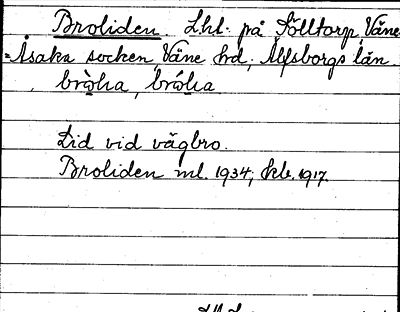 Broliden. L.hl. på Sölltorp, Väne
-Åsaka socken, Väne hd, Älfsborgs län.
Lid vid vägbro.
Broliden ml. 1934; kb. 1917.